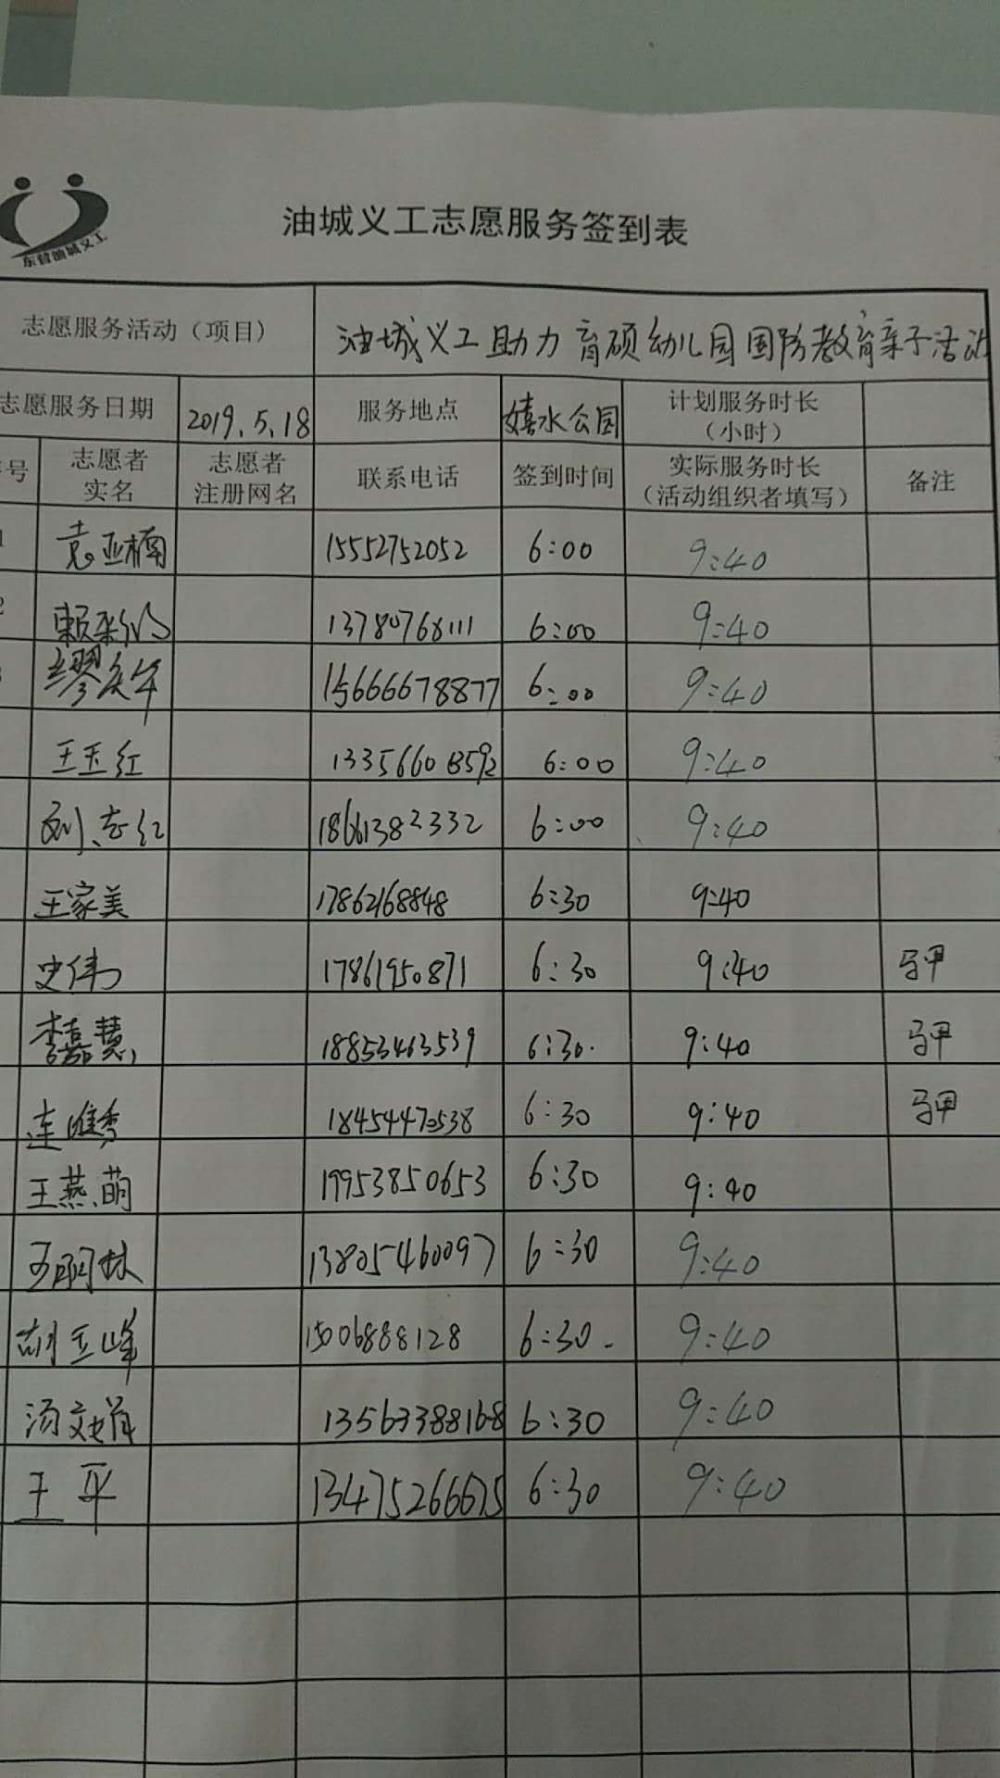 东营油城义工
油城义工志愿服务签到表
志愿服务活动（项目） 油城义工助力育硕幼儿园国防教育亲子活动
志愿服务日期 2019.5.18 服务地点 嬉水公园 计划服务时长（小时）
号 志愿者实名 志愿者注册网名 联系电话 签到时间 实际服务时长（活动组织者填写） 备注
1 袁亚楠 15552752052 6:00 9:40
2 赖 13780768111 6:00 9:40
缪 15666678877 6:00 9:40
王玉红 13356603592 6:00 9:40
刘志红 18661382332 6:00 9:40
王家美 17862168848 6:30 9:40
史伟 17861950871 6:30 9:40 马甲
李嘉慧 18853463539 6:30. 9:40 马甲
连唯秀 18454470538 6:30 9:40 马甲
王燕萌 19953850653 6:30 9:40
13805460097 6:30 9:40
胡玉峰 15006888128 6:30 9:40
汤 13563388168 6:30 9:40
王平 13475266675 6:30 9:40